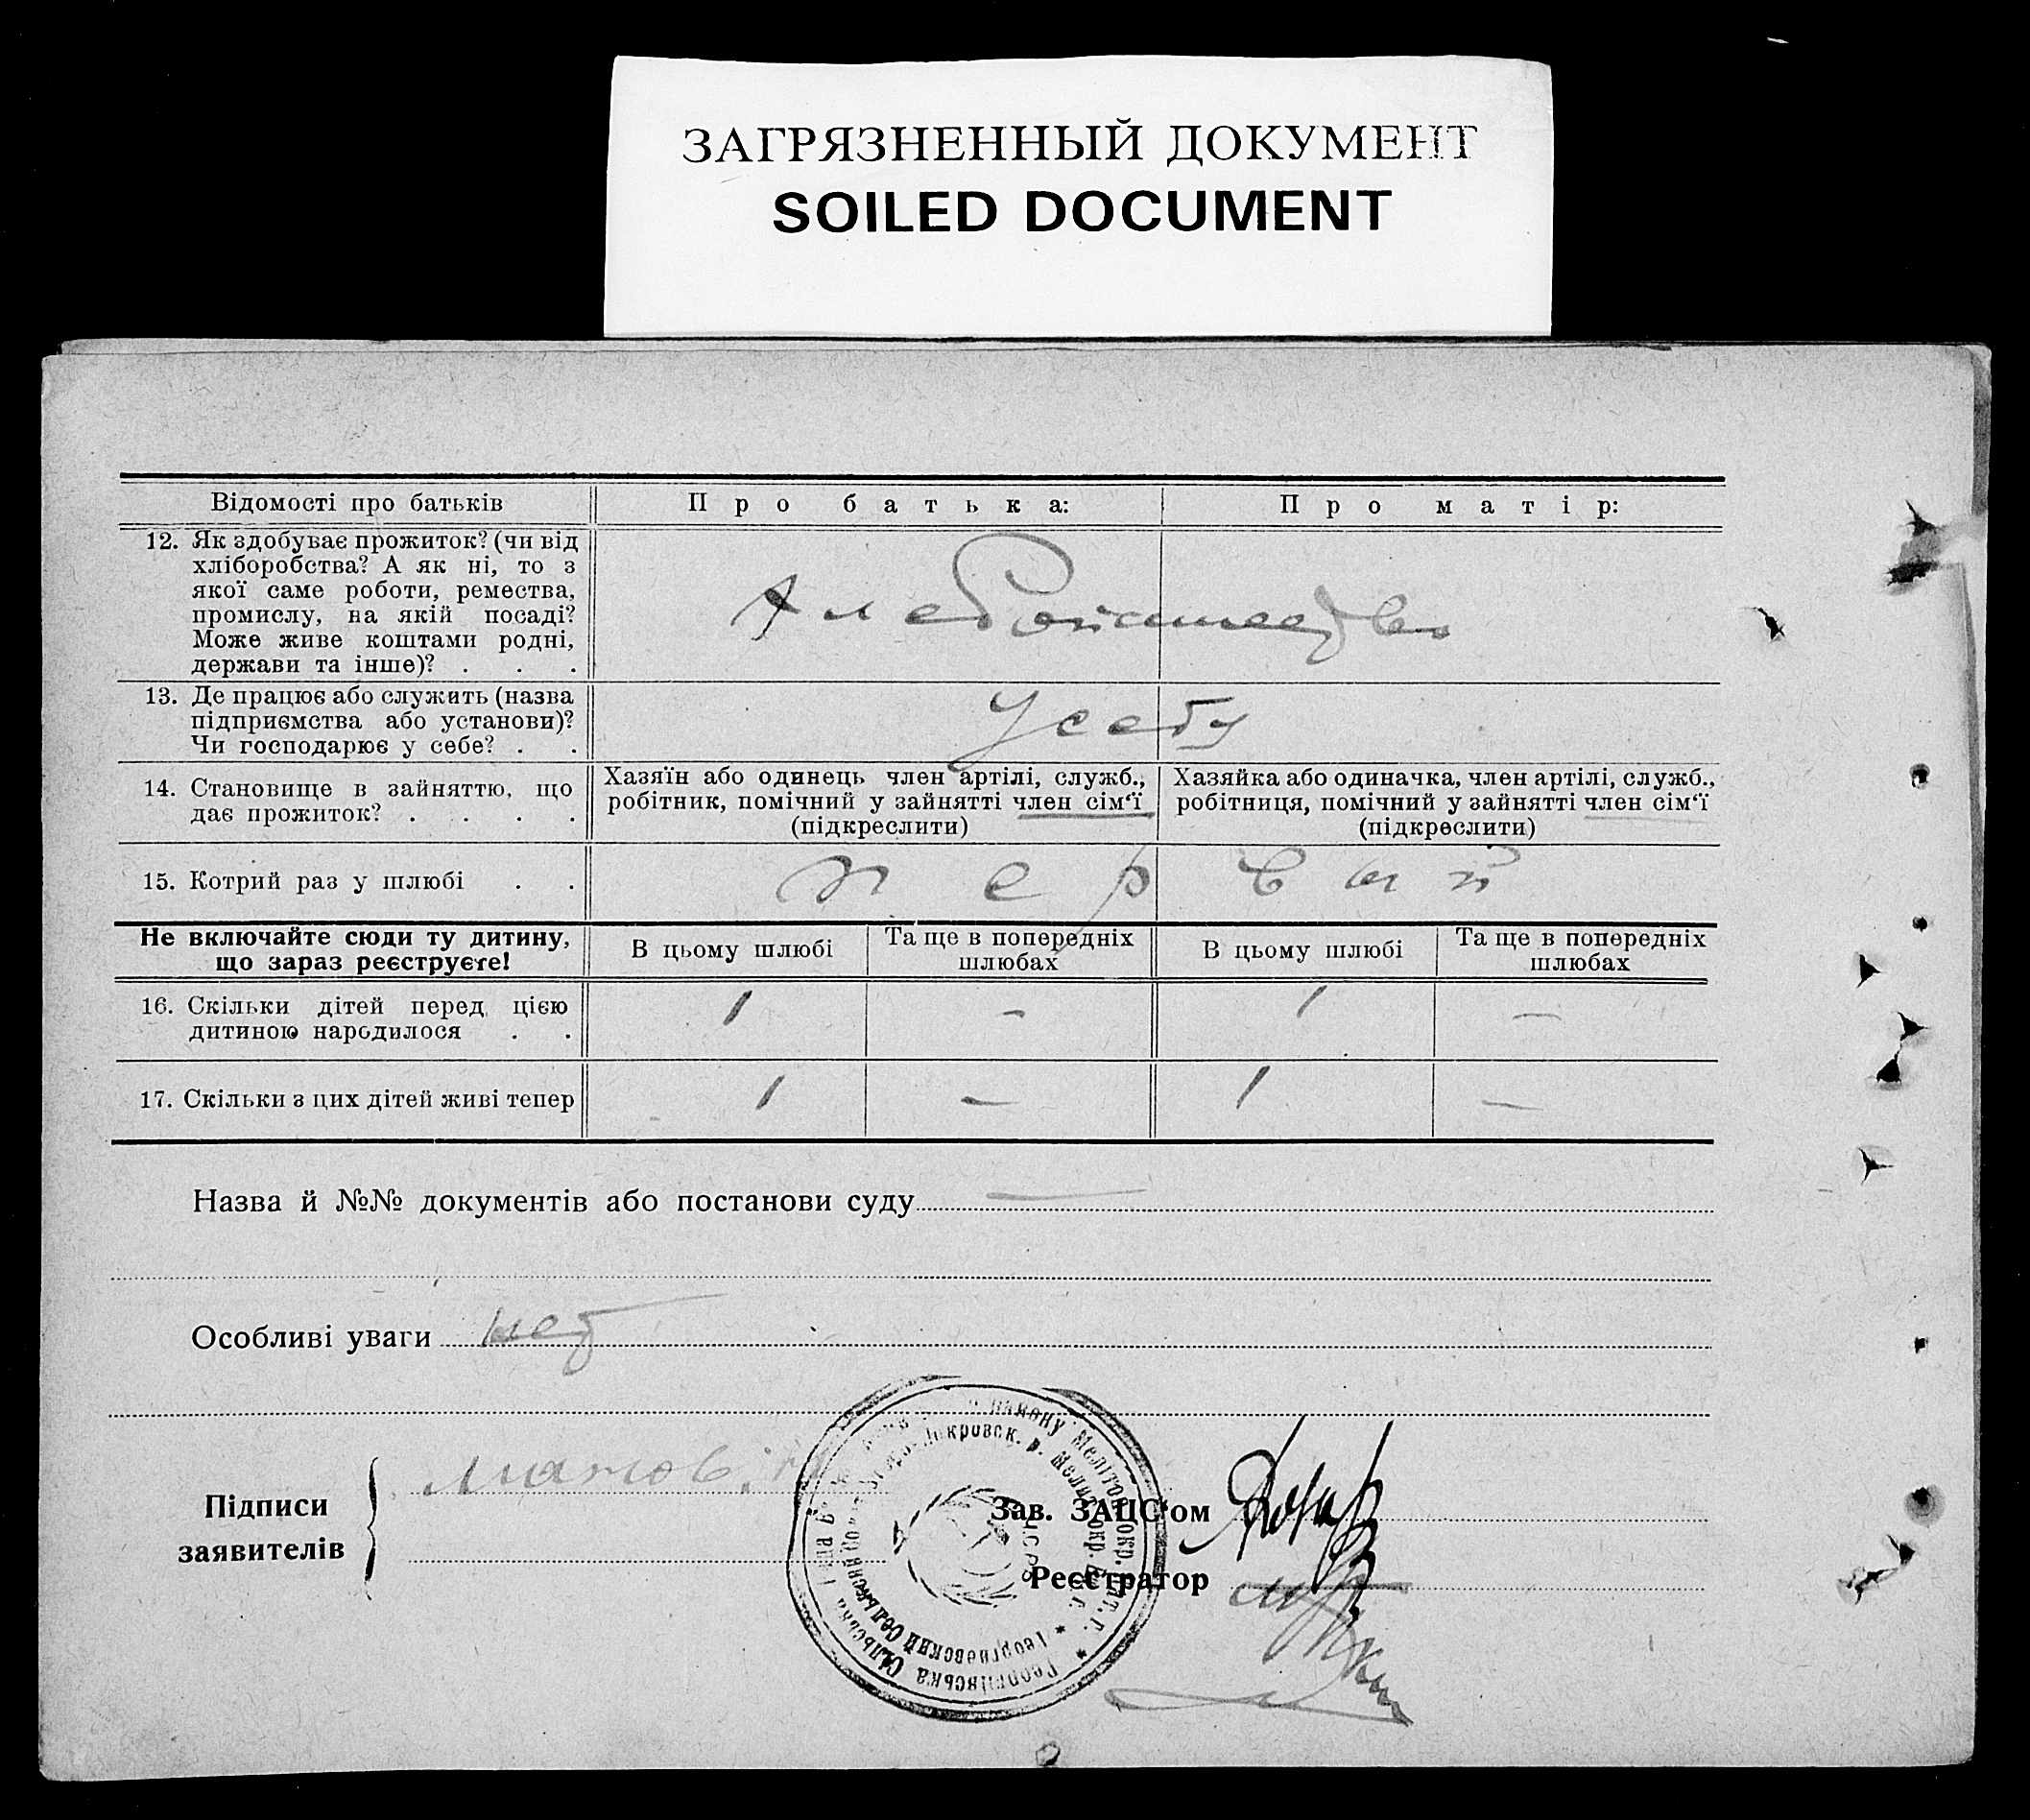 ЗАГРЯЗНЕННЫЙ ДОКУМЕНТ
SOILED DOCUMENT
Відомості про батьків
Про батька:
Про матір:
12. Як здобуває прожиток? (чи від
хліборобства? А як ні, то з
якої саме роботи, ремества,
промислу, на якій посаді?
Може живе коштами родні,
держави та інше)? . . .
13. Де працює або служить (назва
підприємства або установи)?
Чи господарює у себе? . .
У себу
14. Становище в зайняттю, що
дає прожиток? . . . .
Хазяїн або одинець член артілі, служб.,
робітник, помічний у зайнятті член сім'ї
(підкреслити)
Хазяйка або одиначка, член артілі, служб.,
робітниця, помічний у зайнятті член сім'ї
(підкреслити)
15. Котрий раз у шлюбі . .
первый
Не включайте сюди ту дитину,
що зараз реєструєте!
В цьому шлюбі
Та ще в попередніх
шлюбах
В цьому шлюбі
Та ще в попередніх
шлюбах
16. Скільки дітей перед цією
дитиною народилося . .
1 — 1 —
17. Скільки з цих дітей живі тепер
1 — 1 —
Назва й №№ документів або постанови суду —
Особливі уваги нет
Підписи
заявителів
Зав. ЗАЦС'ом
Реєстратор
Георгіївська Сільська
району Мелітоп. окр.
Георгиевский Сель
кровск. р. Мелит. окр.